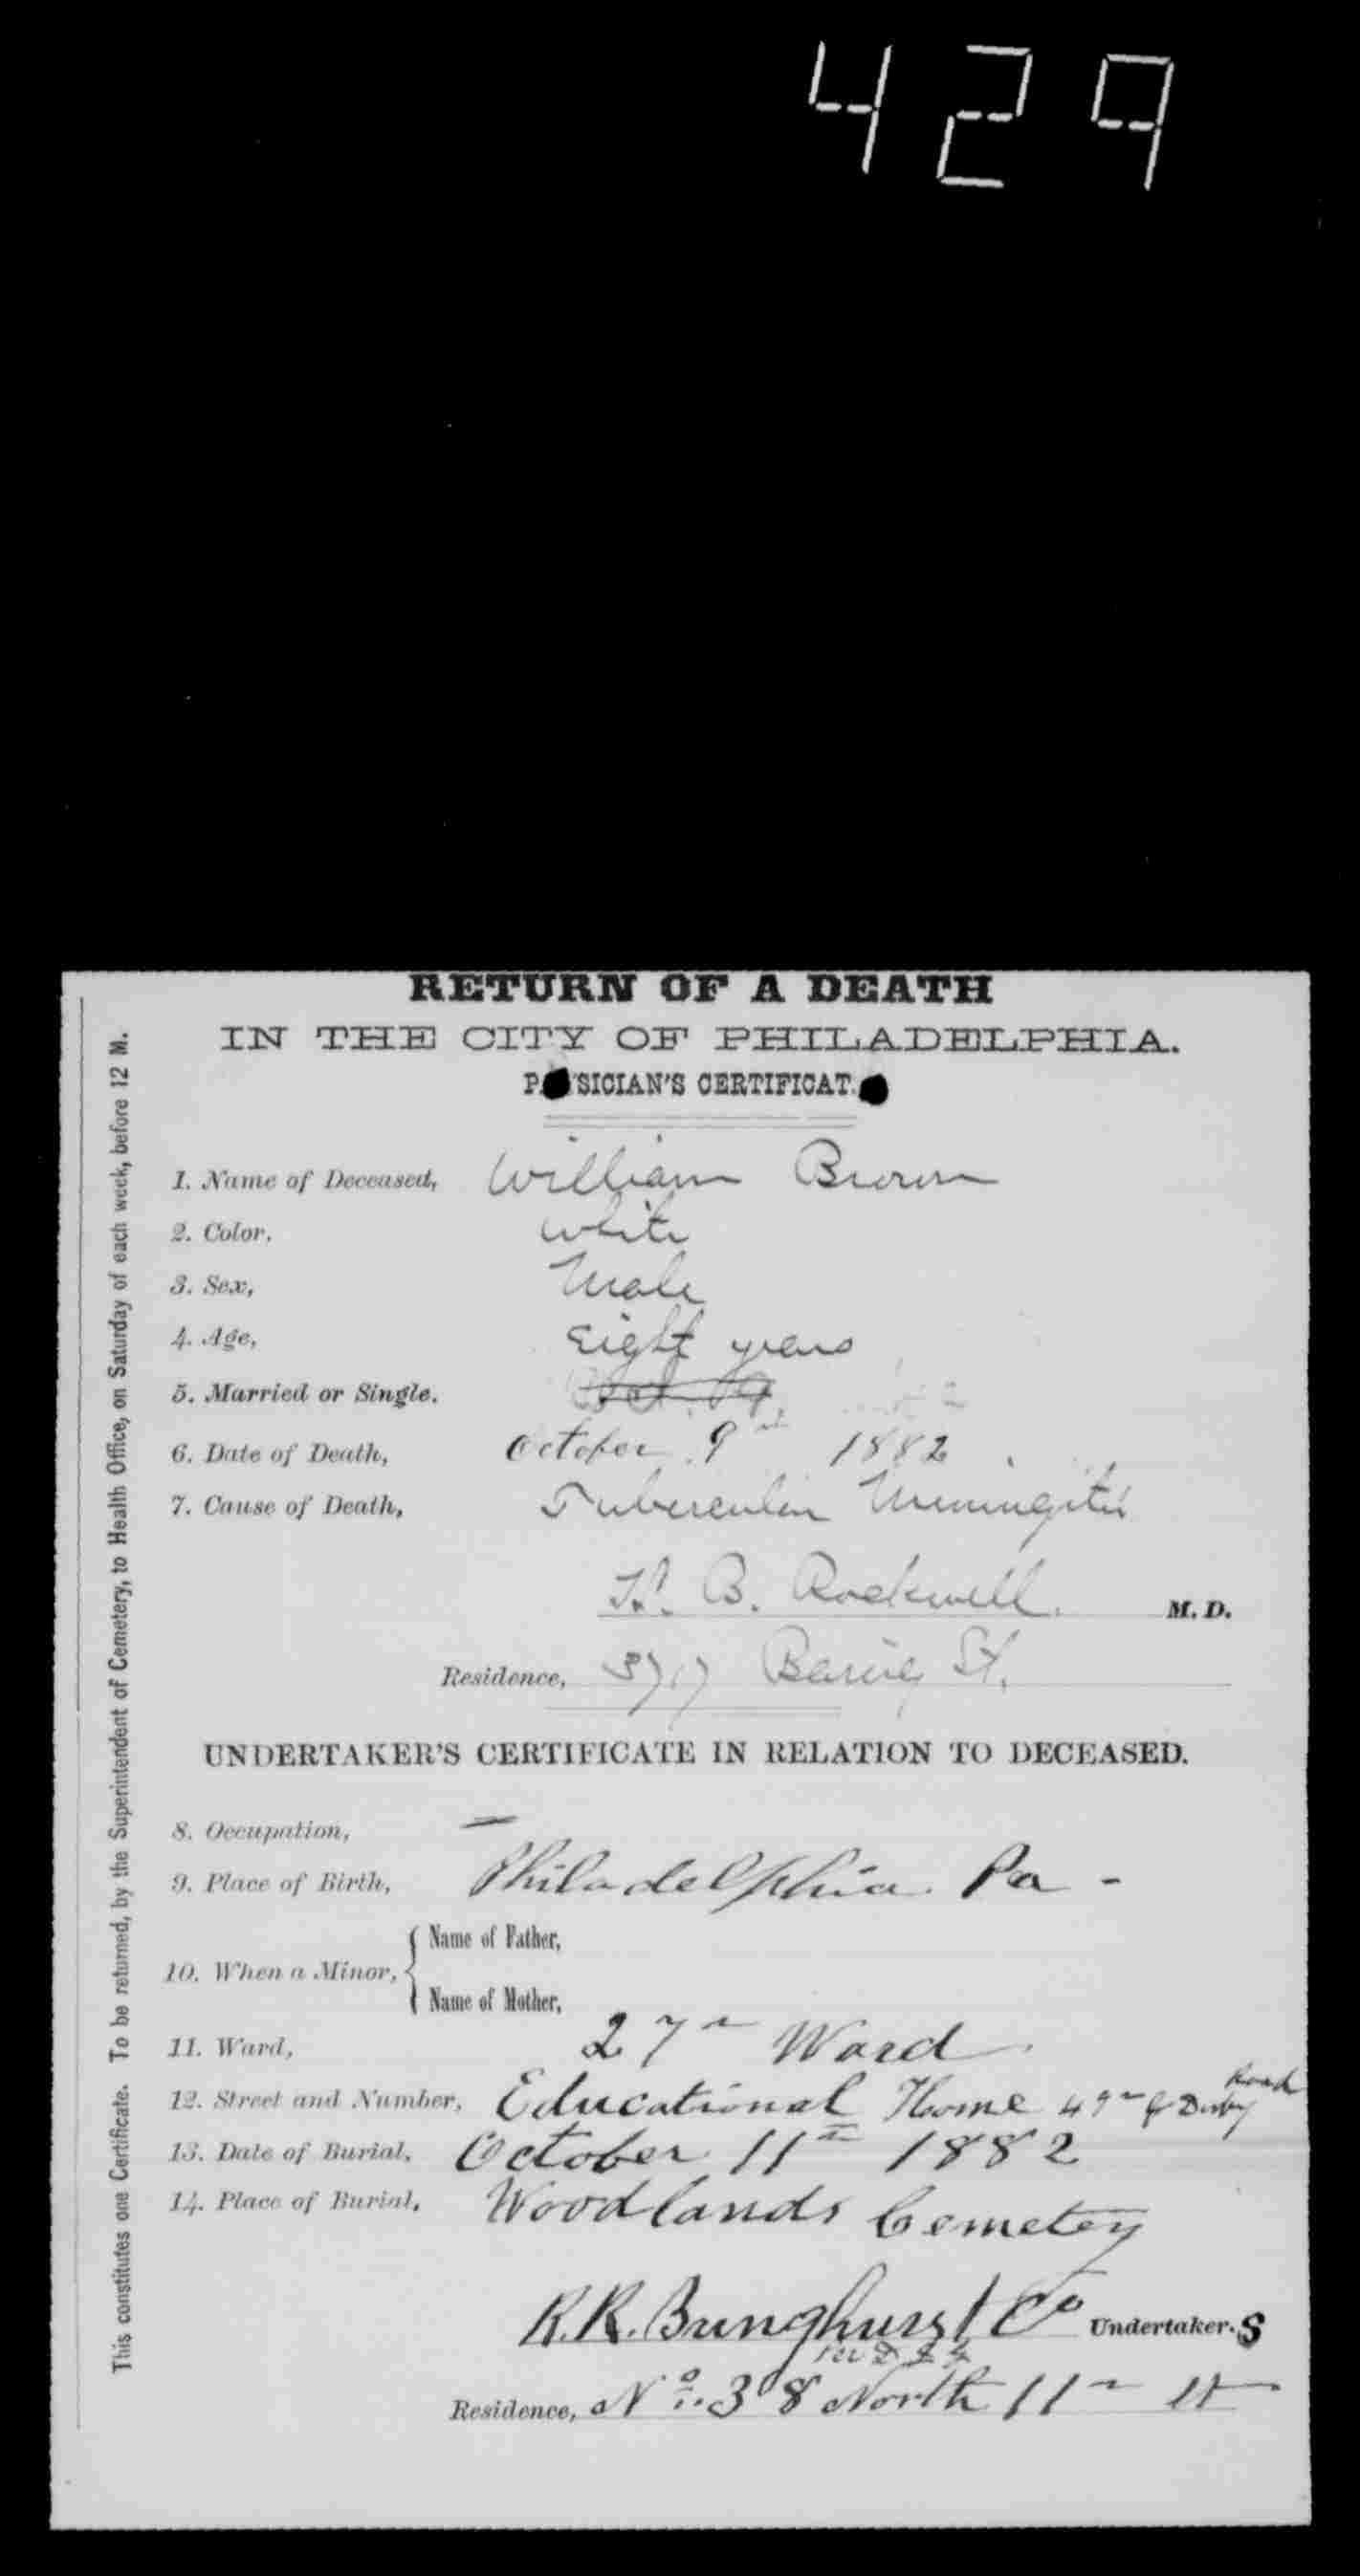 429
RETURN OF A DEATH
IN THE CITY OF PHILADELPHIA.
P SICIAN'S CERTIFICAT
1. Name of Deceased, William Brown
2. Color, white
3. Sex, Male
4. Age, Eight years
5. Married or Single.
6. Date of Death, October 9th 1882
7. Cause of Death, Tubercular Meningitis
B. Rockwell M. D.
Residence, Baring St.
UNDERTAKER'S CERTIFICATE IN RELATION TO DECEASED.
8. Occupation, —
9. Place of Birth, Philadelphia. Pa -
10. When a Minor, { Name of Father,
Name of Mother,
11. Ward, 27th Ward
12. Street and Number, Educational Home 49th & Darby Road
13. Date of Burial, October 11th 1882
14. Place of Burial, Woodlands Cemetey
R.R. Bringhurst Co Undertaker.s
Residence, No. 38 North 11th St
This constitutes one Certificate. To be returned, by the Superintendent of Cemetery, to Health Office, on Saturday of each week, before 12 M.